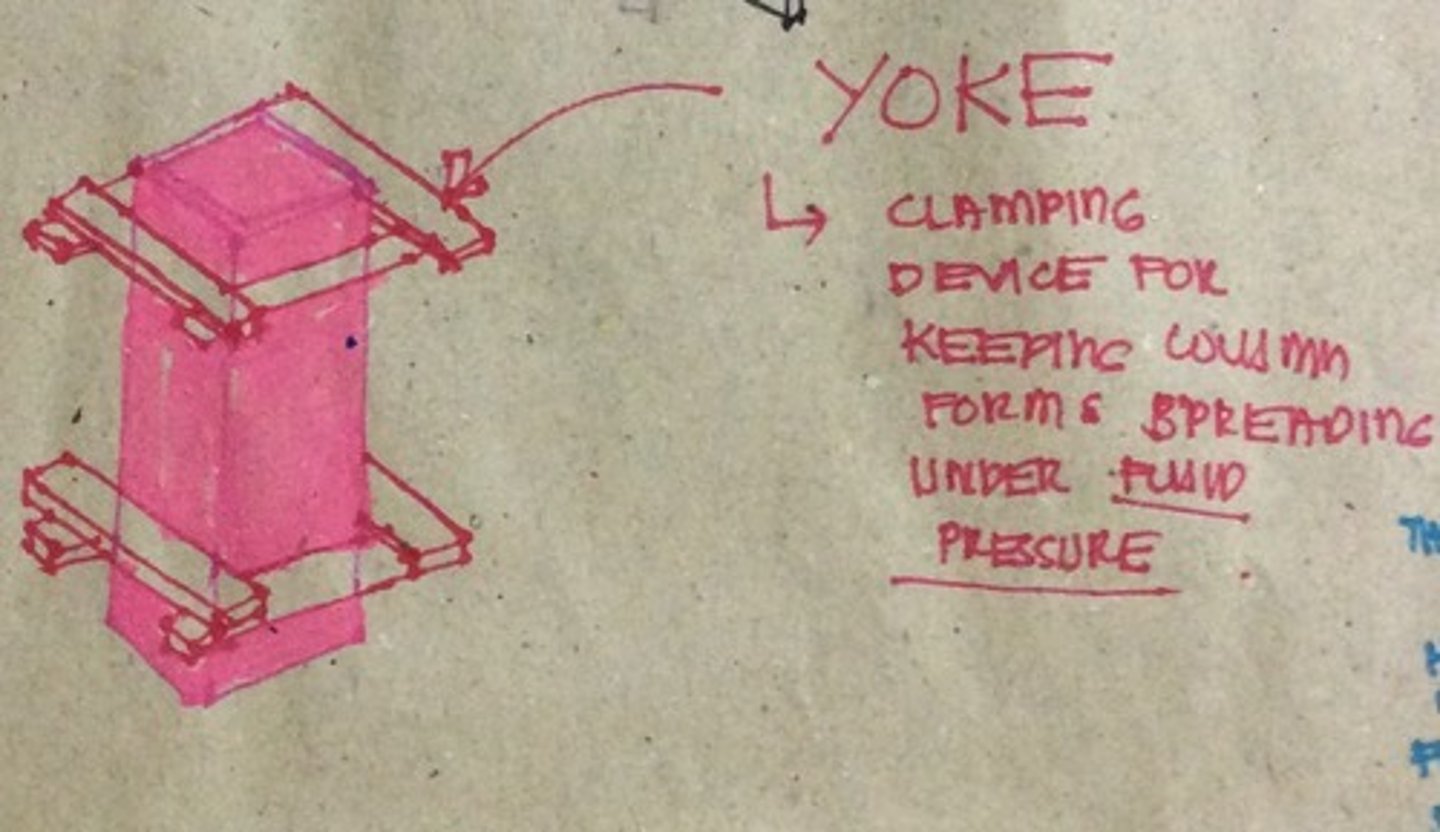 YOKE
↳ CLAMPING
DEVICE FOR
KEEPING COLUMN
FORMS SPREADING
UNDER FLUID
PRESSURE
TH